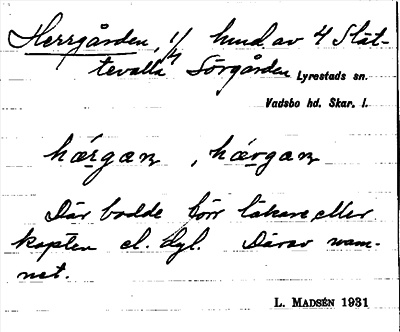 Herrgården, 1/4 hmd av 4 Slät-
tevalla Sörgården Lyrestads sn.
Vadsbo hd. Skar. l.
hærgan, hærgan
Där bodde förr läkare, eller
kapten el. dyl. Därav nam-
net.
L. MADSÉN 1931